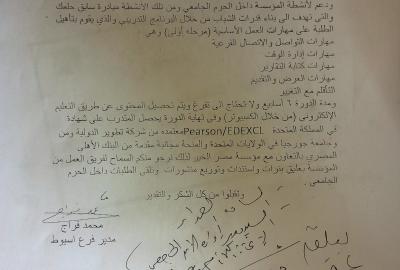 ودعم لأنشطة المؤسسة داخل الحرم الجامعي ومن تلك الأنشطة مبادرة سابق حلمك
والتى تهدف الى بناء قدرات الشباب من خلال البرنامج التدريبي والذي يقوم بتأهيل
الطلبة على مهارات العمل الأساسية (مرحلة أولى) وهي
مهارات التواصل والاتصال الفرعية
مهارات إدارة الوقت
مهارات كتابة التقارير
مهارات العرض والتقديم
التأقلم مع التغيير
ومدة الدورة ٦ أسابيع ولا تحتاج الى تفرغ ويتم تحصيل المحتوى عن طريق التعليم
الإلكترونى (من خلال الكمبيوتر) وفى نهاية الدورة يحصل المتدرب على شهادة
معتمده من شركة تطوير الدولية ومن Pearson/EDEXCL في المملكة المتحدة
جامعة جورجيا في الولايات المتحدة والمنحة مجانية مقدمة من البنك الأهلى
المصري بالتعاون مع مؤسسة مصر الخير لذلك نرجو منكم السماح لفريق العمل من
المؤسسة بعليق بنرات واستندات وتوزيع منشورات وتلقى الطلبات داخل الحرم
الجامعى .
وتقبلوا من كل الشكر والتقدير
محمد فراج
مدير فرع اسيوط